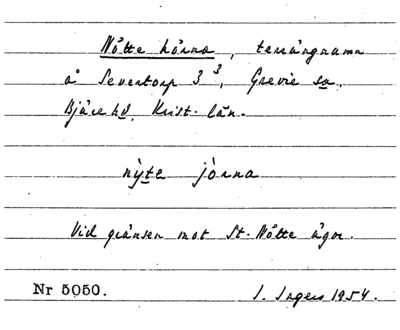 Nötte hörna, terrängnamn
å Severtorp 3³, Grevie sn.
Bjäre hd. Krist. län.
nỳte jòrna
Vid gränsen mot St. Nötte ägor.
Nr 5050. I. Ingers 1954.